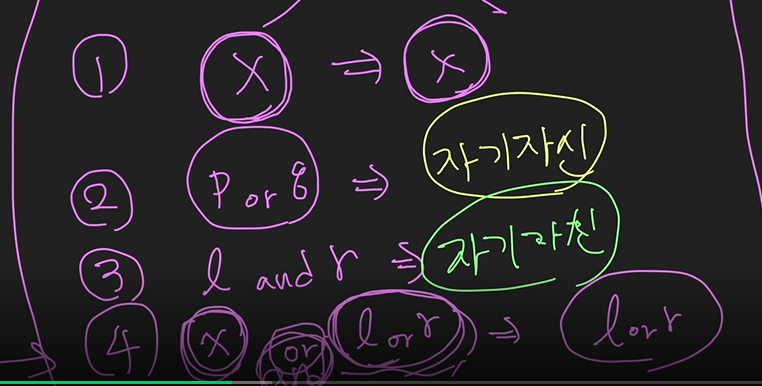 ① X ⇒ X
② P or q ⇒ 자기자신
③ l and r ⇒ 자기자신
④ X or l or r ⇒ l or r
and